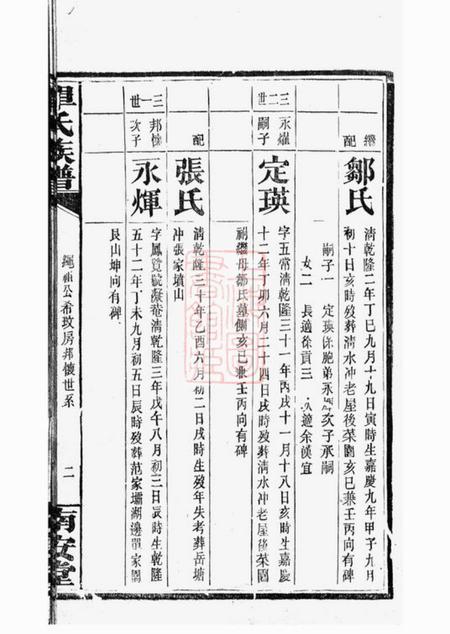 繼配
鄒氏
清乾隆二年丁巳九月十九日寅時生嘉慶九年甲子九月
初十日亥時歿葬清水冲老屋後菜園亥巳兼壬丙向有碑
嗣子一 定瑛係胞弟永 次子承嗣
女二 長適徐貢三 次適余漢宜
三二世
永耀嗣子
定瑛
字五常清乾隆三十一年丙戌十一月十八日亥時生嘉慶
十二年丁卯六月二十四日戌時歿葬清水冲老屋後菜園
祔繼母鄒氏墓側亥巳兼壬丙向有碑
配
張氏
清乾隆三十年乙酉六月初二日戌時生歿年失考葬岳塘
冲張家墳山
三一世
邦懷次子
永煇
字鳳覽號凝菴清乾隆三年戊午八月初三日辰時生乾隆
五十二年丁未九月初五日辰時歿葬范家壩湖邊單家園
艮山坤向有碑
單氏族譜
繩祖公希玫房邦懷世系
二
南安堂